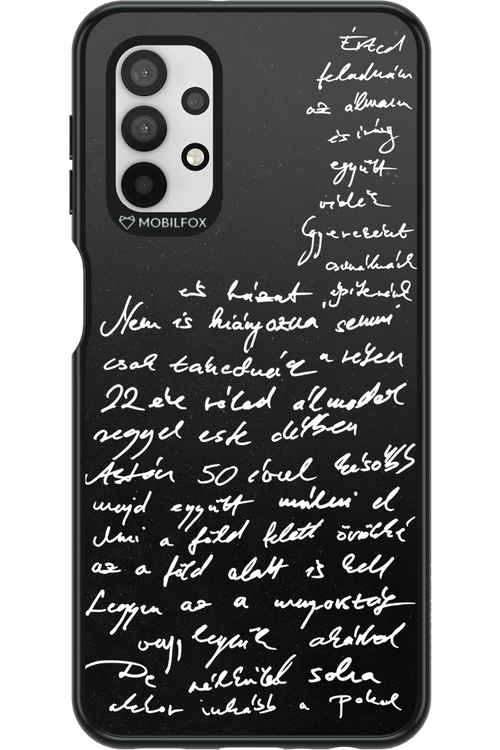 MOBILFOX
Érted
feladnám
az álmam
és irány
együtt
vidék
Gyerekeket
csinálnánk
és házat építenénk
Nem is hiányozna semmi
csak takednák a réten
22 éve rólad álmodok
reggel este délben
Aztán 50 évvel később
majd együtt múlni el
Ami a föld felett örökké
az a föld alatt is kell
Legyen az a mennyország
vagy legyünk akárhol
De nélküled soha
akkor inkább a pokol